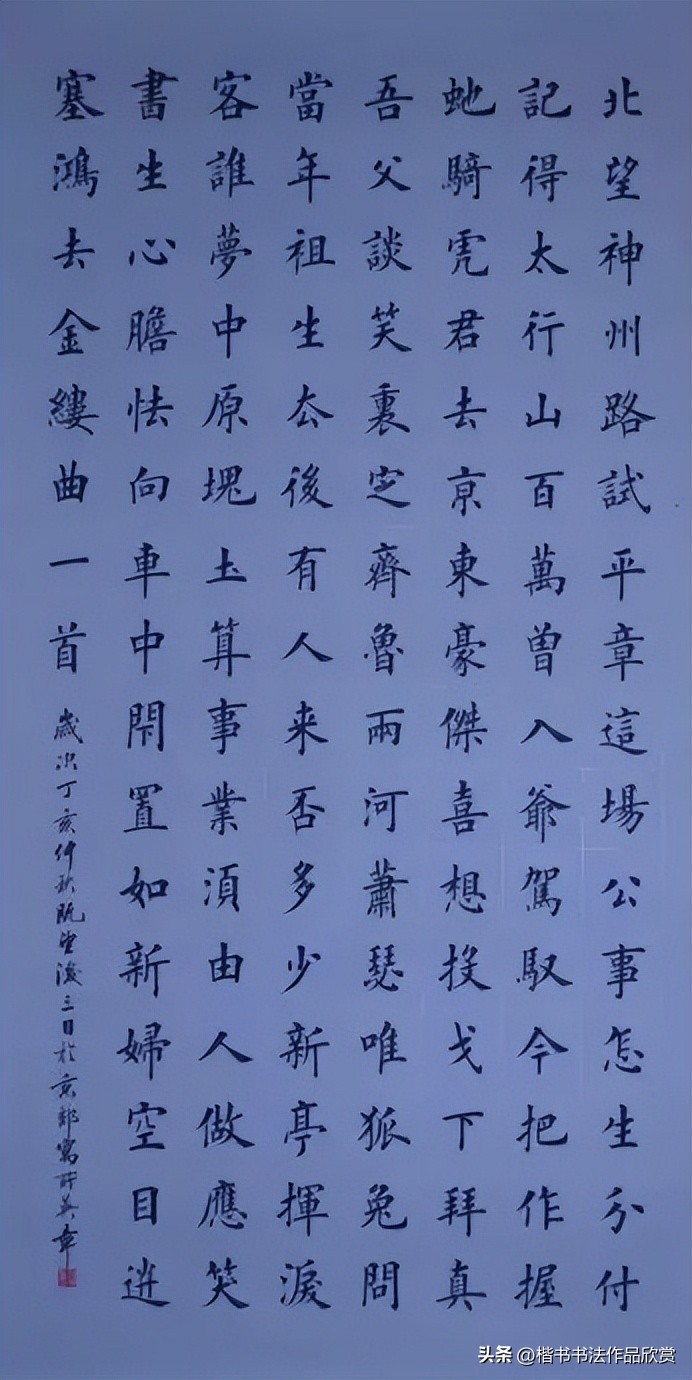 北望神州路試平章這場公事怎生分付
記得太行山百萬曾入爺駕馭今把作握
虵騎虎君去京東豪傑喜想投戈下拜真
吾父談笑裏定齊魯兩河蕭瑟唯狐兔問
當年祖生去後有人来否多少新亭揮淚
客誰夢中原塊土算事業須由人做應笑
書生心膽怯向車中閇置如新婦空目送
塞鴻去金縷曲一首
歲次丁亥仲秋既望後三日於京郵寫
头条 @楷书书法作品欣赏